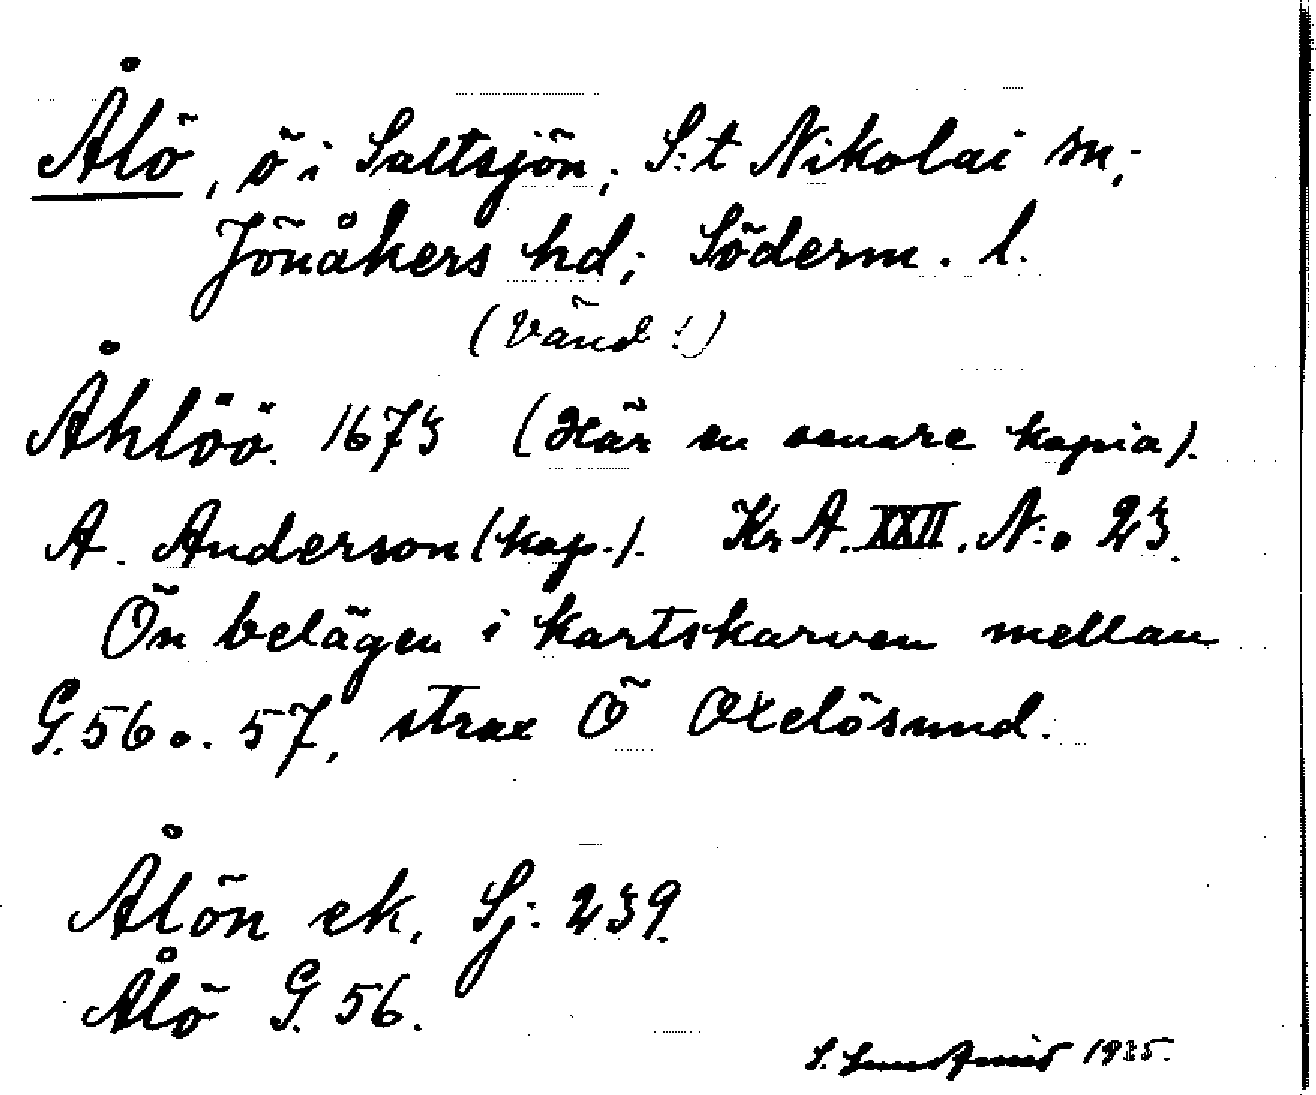 Ålö, ö i Saltsjön; S:t Nikolai sn;
Jönåkers hd; Söderm. l.
(Vänd!)
Åhlöö. 1673 (Här en senare kopia).
A. Anderson (kap.). Kr. A. XXII. N:o 23.
Ön belägen i kartskarven mellan
G. 56 o. 57, strax Ö Oxelösund.
Ålön ek. Sj: 239.
Ålö G. 56.
S. 1935.